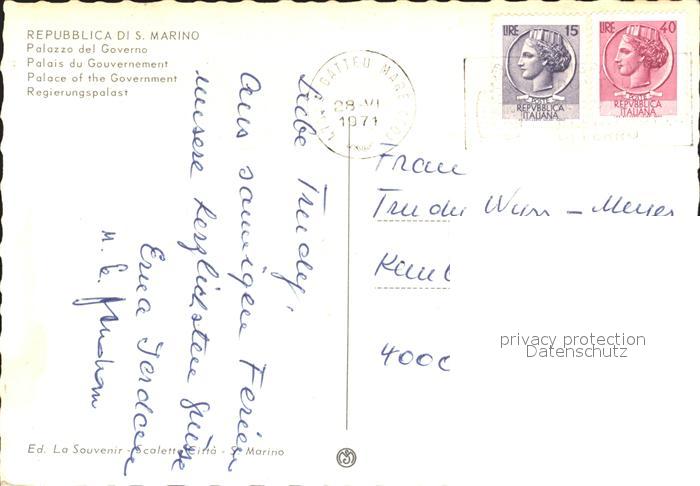 REPUBBLICA DI S. MARINO
Palazzo del Governo
Palais du Gouvernement
Palace of the Government
Regierungspalast
LIRE 15
POSTE
REPVBBLICA
ITALIANA
LIRE 40
POSTE
REPVBBLICA
ITALIANA
GATTEO MARE
28-VI
1971
Liebe Trudy,
Aus sonnigen Ferien
unsere herzlichsten Grüsse
Erna
Frau
Trudi - Meier
400
privacy protection
Datenschutz
Ed. La Souvenir - Scaletta Città - S. Marino